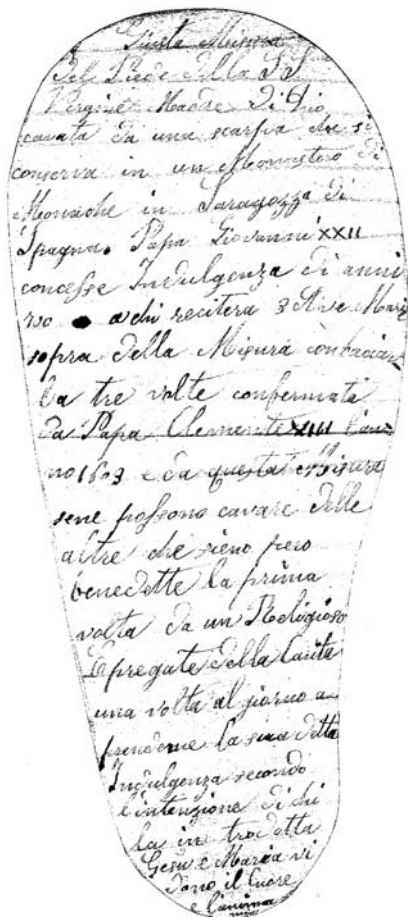 Giusta Misura
del Piede della SS
Vergine Madre di Dio
cavata da una scarpa che si
conserva in un Monastero di
Monache in Saragozza di
Spagna. Papa Giovanni XXII
concesse Indulgenza di anni
a chi recitera 3 Ave Maria
sopra della Misura conbacian
la tre volte confermata
da Papa Clemente XIII l'an
no 1603 e da questa Misura
sene possono cavare delle
altre che sieno pero
benedette la prima
volta da un Religioso
E pregate della Carita
una volta al giorno a
prenderne la sua detta
Indulgenza secondo
l'intenzione di chi
la in trodotta
Gesu e Maria vi
dono il Cuore
e l'anima
mia